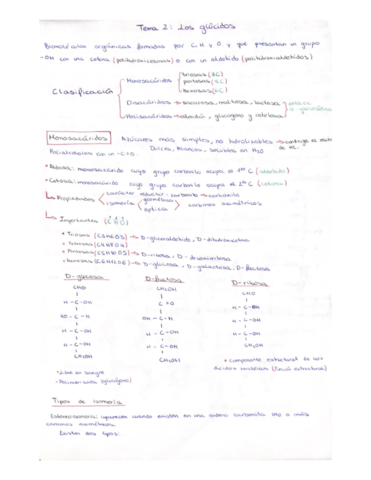 Tema 2: Los glúcidos
Biomoléculas orgánicas formadas por C, H y O y que presentan un grupo
-OH con una cetona (polihidroxicetonas) o con un aldehído (polihidroxialdehídos)
Clasificación
Monosacáridos
triosas (3C)
pentosas (5C)
hexosas (6C)
Disacáridos → sacarosa, maltosa, lactosa
enlace
o-glucosídico
Polisacáridos → almidón, glucógeno y celulosa
Monosacáridos
Azúcares más simples, no hidrolizables →
Dulces, blancos, solubles en H2O
Polialcoholes con un -C=O.
• Aldosa: monosacárido cuyo grupo carbonilo ocupa el 1er C (aldehído)
• Cetosa: monosacárido cuyo grupo carbonilo ocupa el 2º C (cetona)
Propiedades
carácter reductor - carbonilo → carbonilo
isomería
geométrica
óptica
carbonos asimétricos
Importantes
• Triosas (C3H6O3) → D-gliceraldehído, D-dihidroxiacetona
• Tetrosas (C4H8O4)
• Pentosas (C5H10O5) → D-ribosa, D-desoxirribosa
• Hexosas (C6H12O6) → D-glucosa, D-galactosa, D-fructosa
D-glucosa D-fructosa D-ribosa
CHO CH2OH CHO
H - C - OH C = O H - C - OH
HO - C - H OH - C - H H - C - OH
H - C - OH H - C - OH H - C - OH
H - C - OH H - C - OH CH2OH
CH2OH CH2OH
• Componente estructural de los
ácidos nucleicos (función estructural)
• Libre en sangre
Tipos de isomería
Estereoisomería: aparecen cuando existen en una cadena carbonada uno o más
carbonos asimétricos.
Existen dos tipos: